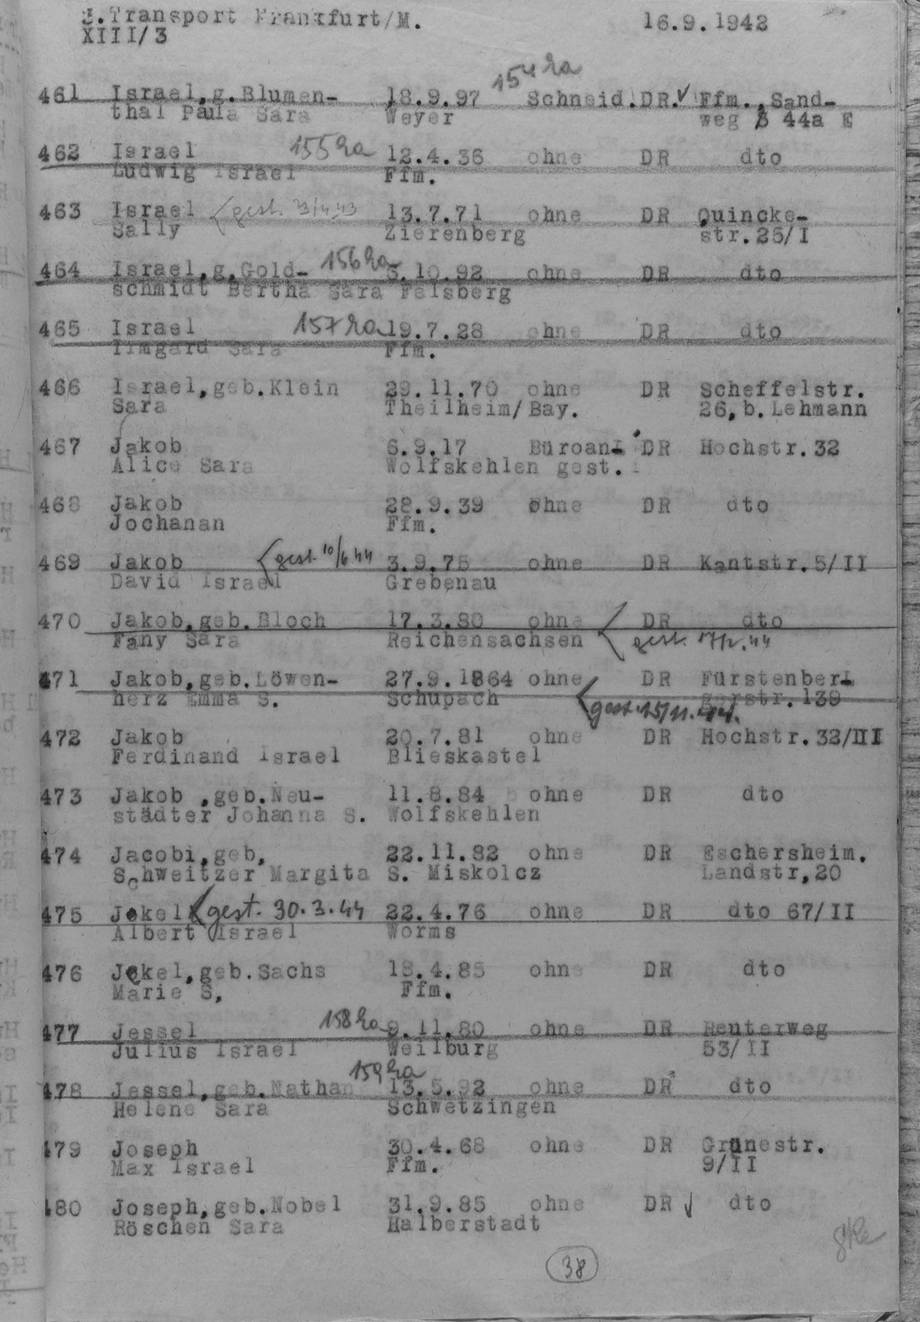 2.Transport Frankfurt/M. 16.9.1942
XIII/3
154 Ra
461 Israel,g.Blumen- 18.9.97 Schneid.DR. Ffm.,Sand-
thal Paula Sara Weyer weg 44a E
462 Israel 155 Ra 12.4.36 ohne DR dto
Ludwig Israel Ffm.
463 Israel gest. 23/4.43 13.7.71 ohne DR Quincke-
Sally Zierenberg str.25/I
464 Israel,g.Gold- 156 Ra 3.10.92 ohne DR dto
schmidt Bertha Sara Felsberg
465 Israel 157 Ra 19.7.28 ohne DR dto
Irmgard Sara Ffm.
466 Israel,geb.Klein 29.11.70 ohne DR Scheffelstr.
Sara Theilheim/Bay. 26,b.Lehmann
467 Jakob 6.9.17 Büroan- DR Hochstr.32
Alice Sara Wolfskehlen gest.
468 Jakob 28.9.39 ohne DR dto
Jochanan Ffm.
469 Jakob gest. 10/6 44 3.9.75 ohne DR Kantstr.5/II
David Israel Grebenau
470 Jakob,geb.Bloch 17.3.80 ohne DR dto
Fany Sara Reichensachsen gest. 44
471 Jakob,geb.Löwen- 27.9.1864 ohne DR Fürstenber-
herz Emma S. Schupach gest. 15/11.44. gerstr.139
472 Jakob 20.7.81 ohne DR Hochstr.32/III
Ferdinand Israel Blieskastel
473 Jakob ,geb.Neu- 11.8.84 ohne DR dto
städter Johanna S. Wolfskehlen
474 Jacobi,geb, 22.11.82 ohne DR Eschersheim.
Schweitzer Margita S. Miskolcz Landstr,20
475 Jekel gest. 30.3.44 22.4.76 ohne DR dto 67/II
Albert Israel Worms
476 Jekel,geb.Sachs 18.4.85 ohne DR dto
Marie S, Ffm.
477 Jessel 158 Ra 9.11.80 ohne DR Reuterweg
Julius Israel Weilburg 53/II
159 Ra
478 Jessel,geb.Nathan 13.5.92 ohne DR dto
Helene Sara Schwetzingen
479 Joseph 30.4.68 ohne DR Grünestr.
Max Israel Ffm. 9/II
480 Joseph,geb.Nobel 31.9.85 ohne DR dto
Röschen Sara Halberstadt
38